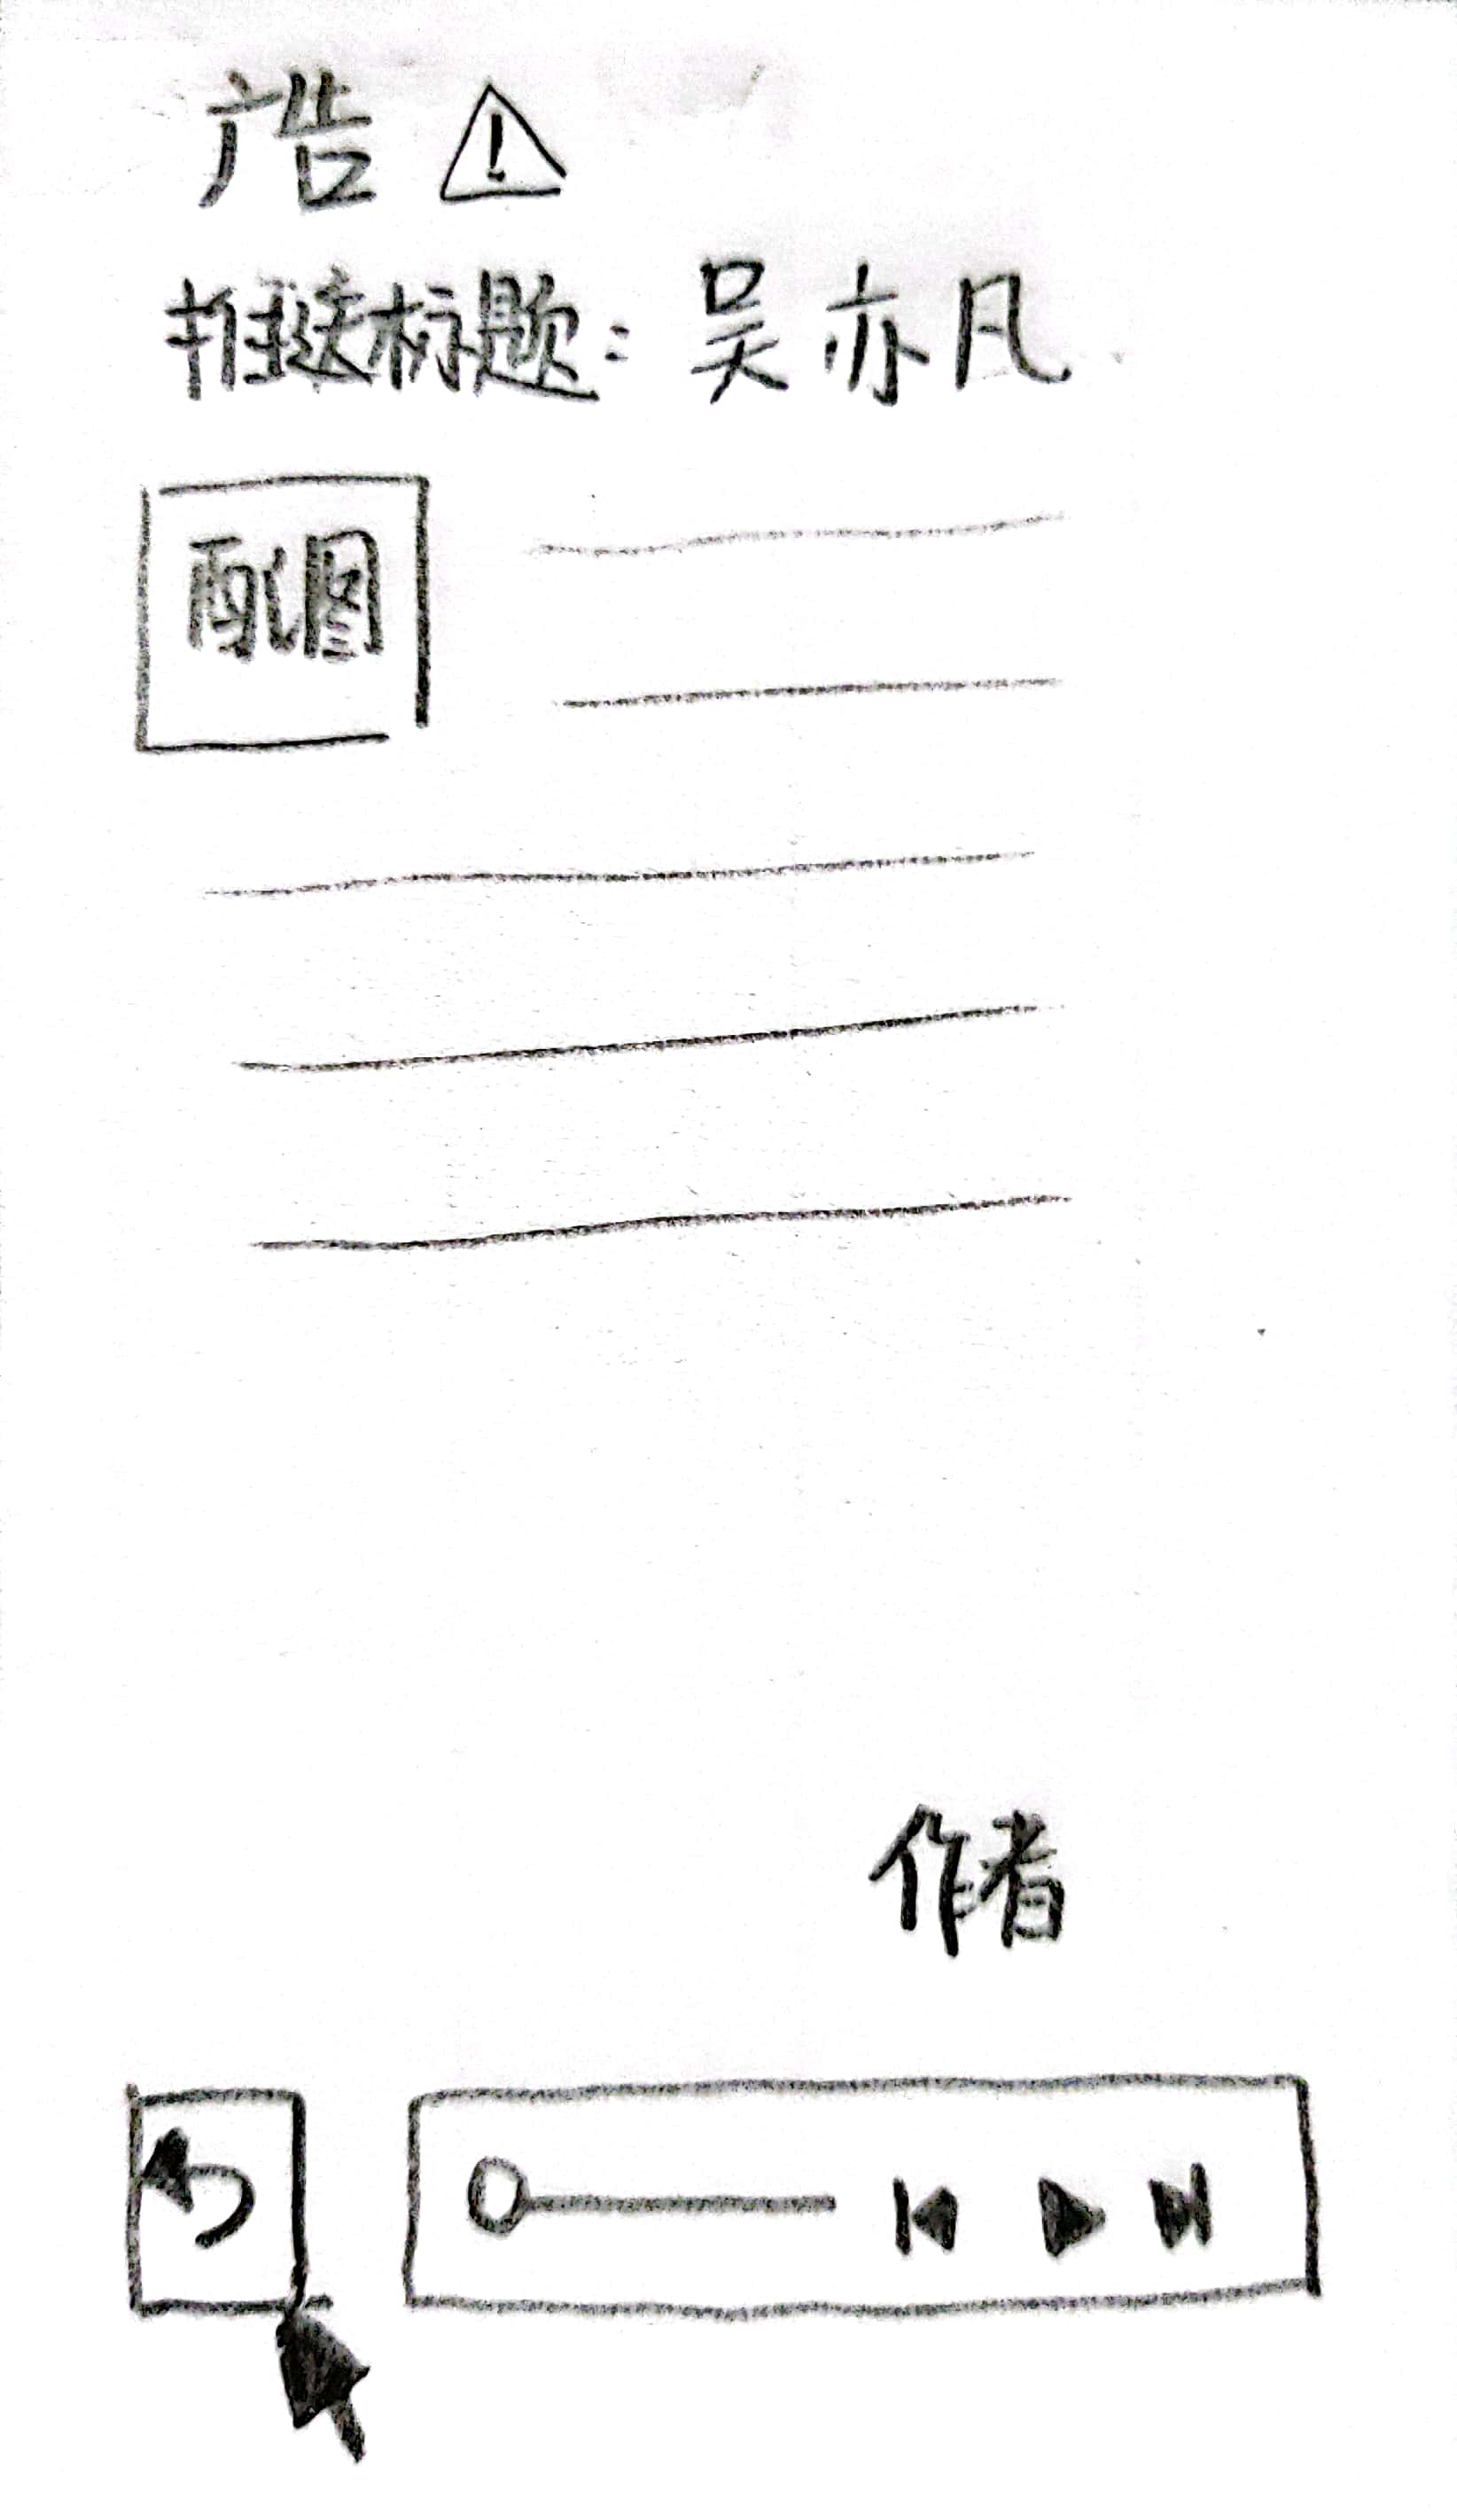 广告
推送标题：吴亦凡
配图
作者